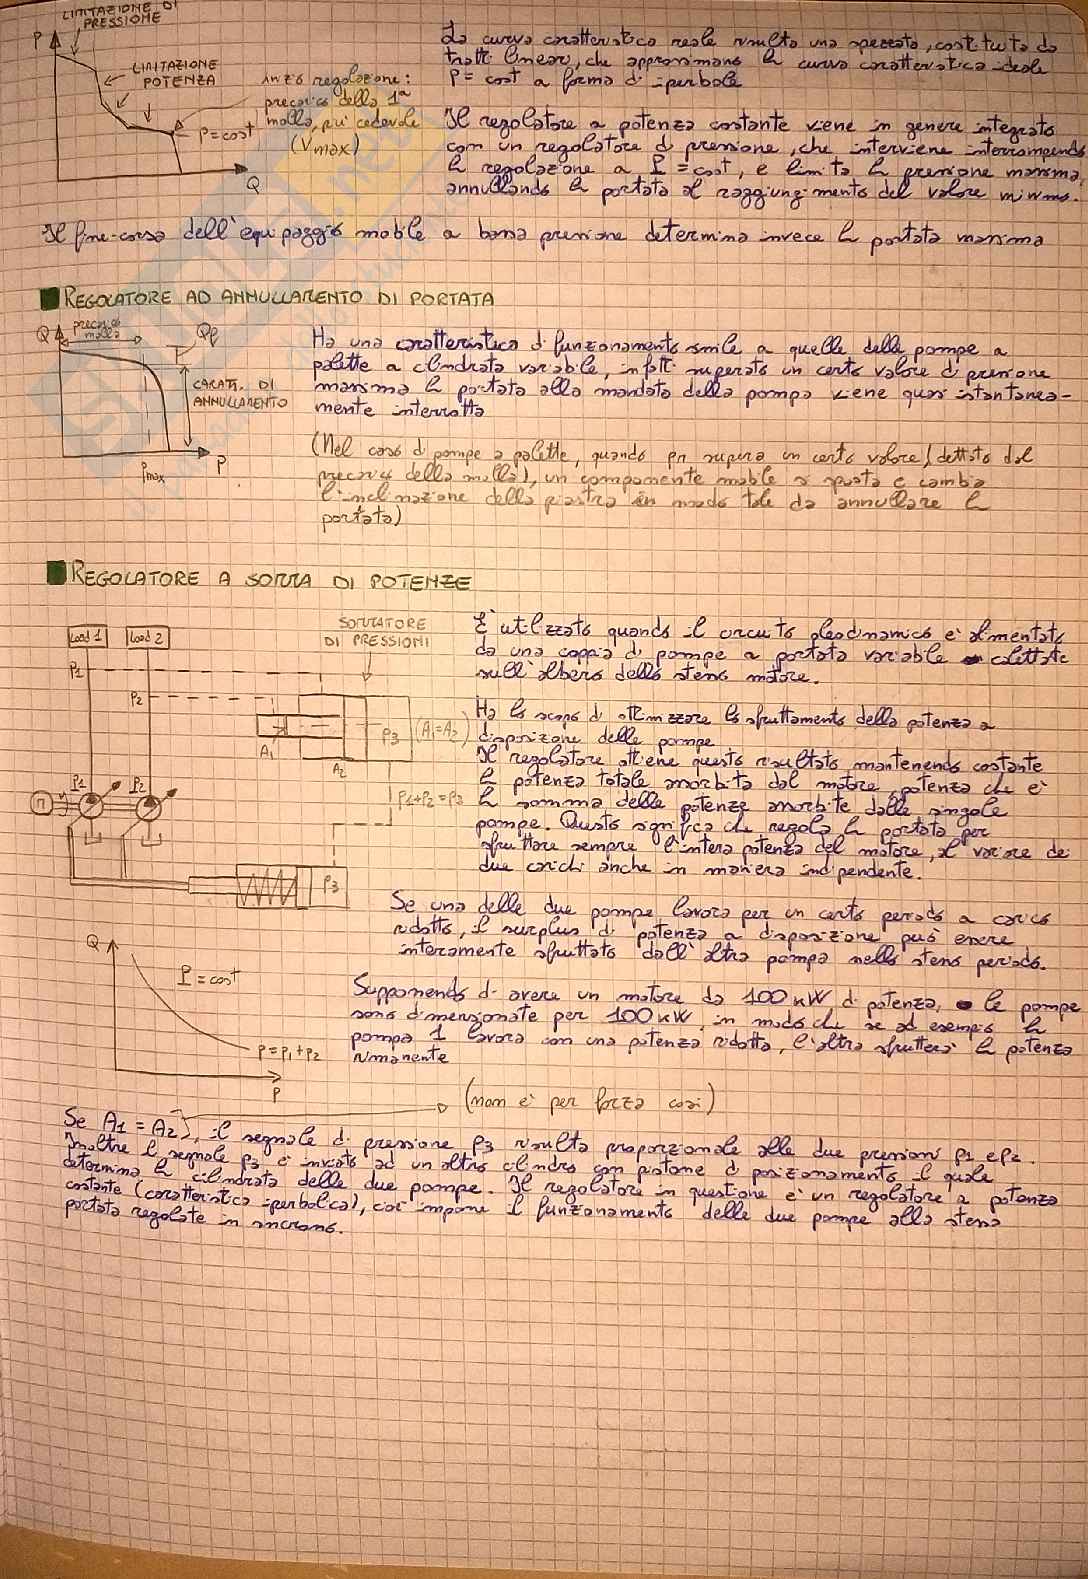 LIMITAZIONE DI
PRESSIONE
P
LIMITAZIONE
POTENZA
inizio regolazione:
precarico della 1ª
molla, più cedevole
(Vmax)
P=cost
Q
La curva caratteristica reale risulta una spezzata, costituita da
tratti lineari, che approssimano la curva caratteristica ideale
P = cost a forma di iperbole
Il regolatore a potenza costante viene in genere integrato
con un regolatore di pressione, che interviene interrompendo
la regolazione a P = cost, e limita la pressione massima,
annullando la portata al raggiungimento del valore minimo.
Il fine-corsa dell'equipaggio mobile a bassa pressione determina invece la portata massima
REGOLATORE AD ANNULLAMENTO DI PORTATA
Q
precarico
molla
CARATT. DI
ANNULLAMENTO
Pmax
P
Ha una caratteristica di funzionamento simile a quelle delle pompe a
palette a cilindrata variabile, infatti superato un certo valore di pressione
massima la portata alla mandata della pompa viene quasi istantanea-
mente interrotta
(Nel caso di pompe a palette, quando pm supera un certo valore (dettato dal
precarico della molla), un componente mobile si sposta e cambia
l'inclinazione della piastra in modo tale da annullare la
portata)
REGOLATORE A SOMMA DI POTENZE
Load 1
Load 2
SOMMATORE
DI PRESSIONI
P1
P2
A1
A2
P3
(A1=A2)
P1
P2
P1+P2=P3
P3
È utilizzato quando il circuito oleodinamico è alimentato
da una coppia di pompe a portata variabile calettate
sull'albero dello stesso motore.
Ha lo scopo di ottimizzare lo sfruttamento della potenza a
disposizione delle pompe
Il regolatore ottiene questo risultato mantenendo costante
la potenza totale assorbita dal motore, potenza che è
la somma delle potenze assorbite dalle singole
pompe. Questo significa che regola la portata per
sfruttare sempre l'intera potenza del motore, al variare dei
due carichi anche in maniera indipendente.
Se una delle due pompe lavora per un certo periodo a carico
ridotto, il surplus di potenza a disposizione può essere
interamente sfruttato dall'altra pompa nello stesso periodo.
Q
P=cost
P=P1+P2
P
Supponendo di avere un motore da 100 kW di potenza, le pompe
sono dimensionate per 100 kW, in modo che se ad esempio la
pompa 1 lavora con una potenza ridotta, l'altra sfrutterà la potenza
rimanente
(non è per forza così)
Se A1 = A2, il segnale di pressione P3 risulta proporzionale alle due pressioni P1 e P2.
Inoltre il segnale P3 è inviato ad un altro cilindro con pistone di posizionamento il quale
determina la cilindrata delle due pompe. Il regolatore in questione è un regolatore a potenza
costante (caratteristica iperbolica), cioè impone il funzionamento delle due pompe alla stessa
portata regolate in sincrono.